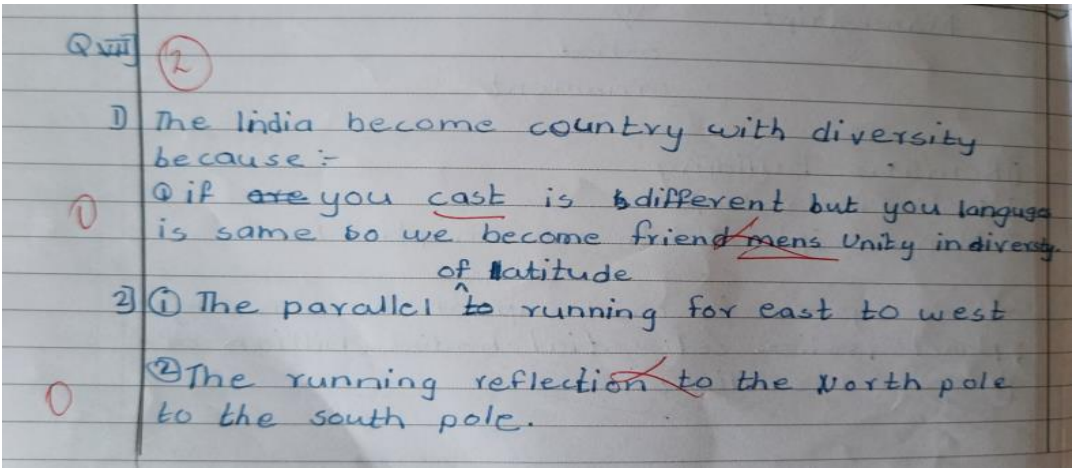 Q VIII] 2
1] The India become country with diversity
because :-
① if are you cast is different but you languge
is same so we become friend mens Unity in diversty.
of latitude
2] ① The parallel to running for east to west
② The running reflection to the North pole
0 to the south pole.